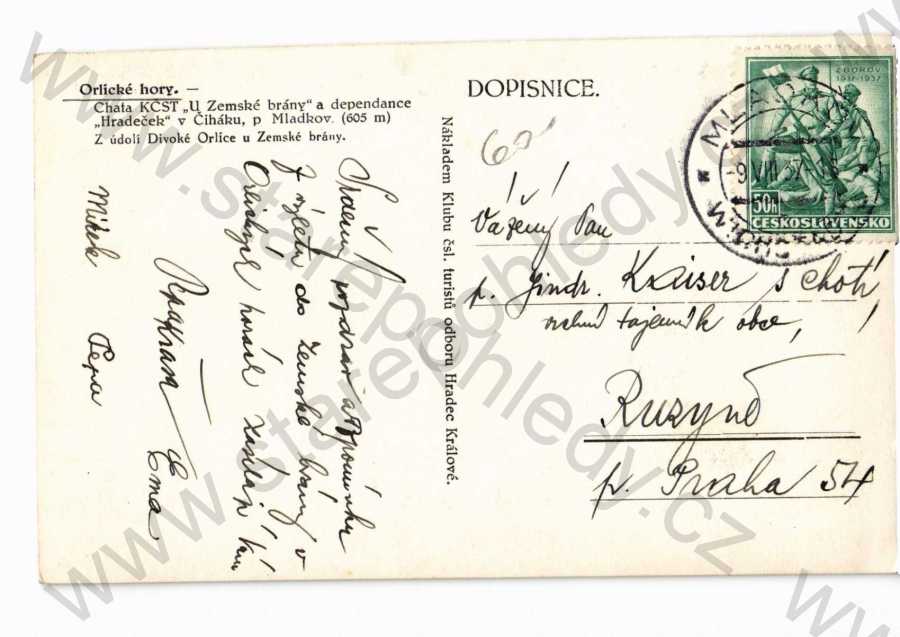 Orlické hory. —
Chata KČST „U Zemské brány“ a dependance
„Hradeček“ v Čiháku, p Mladkov. (605 m)
Z údolí Divoké Orlice u Zemské brány.
DOPISNICE.
Nákladem Klubu čsl. turistů odboru Hradec Králové.
60
ZBOROV
1917-1937
50h
ČESKOSLOVENSKO
-9.VIII.37
Vážený Pan
p. Jindr. Kaiser s chotí
vrchní tajemník obce,
Ruzyně
p. Praha 54
Srdečný pozdrav a vzpomínku
z výletu do Zemské brány v
Orlických horách
Ema
Pepa
www.starepohledy.cz